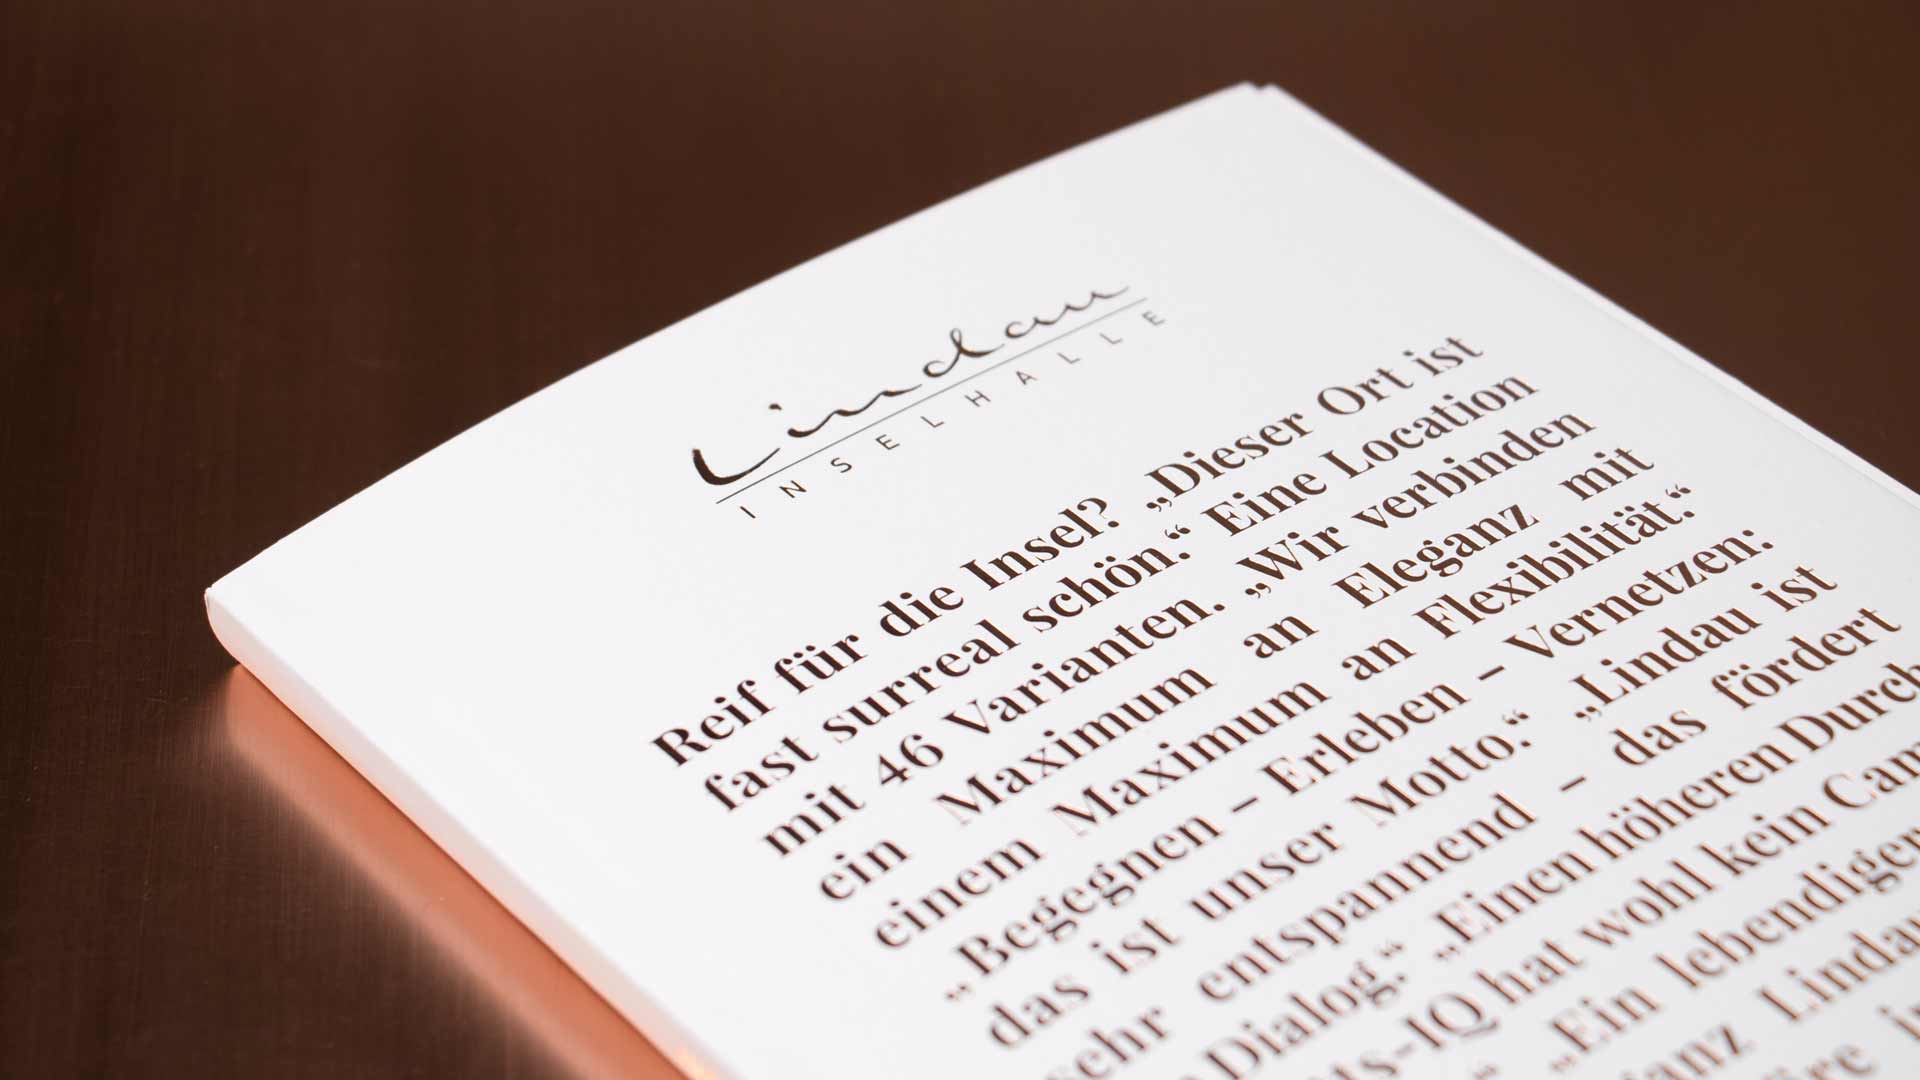 Lindau
INSELHALLE
Reif für die Insel? „Dieser Ort ist
fast surreal schön.“ Eine Location
mit 46 Varianten. „Wir verbinden
ein Maximum an Eleganz mit
einem Maximum an Flexibilität.“
„Begegnen – Erleben – Vernetzen:
das ist unser Motto.“ „Lindau ist
sehr entspannend – das fördert
Dialog.“ „Einen höheren Durch
ts-IQ hat wohl kein Cam
“ „Ein lebendiger
anz Lindau